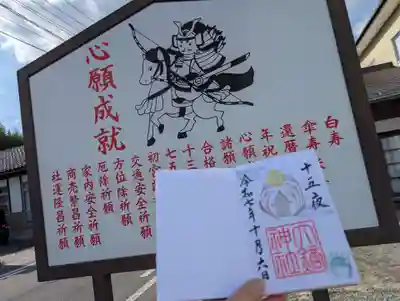 心願成就
白寿
傘寿
還暦
年祝
心願
諸願
合格
十三
七五
初宮
交通安全祈願
方位除祈願
厄除祈願
家内安全祈願
商売繁昌祈願
社運隆昌祈願
十五夜
令和七年十月六日
八幡神社